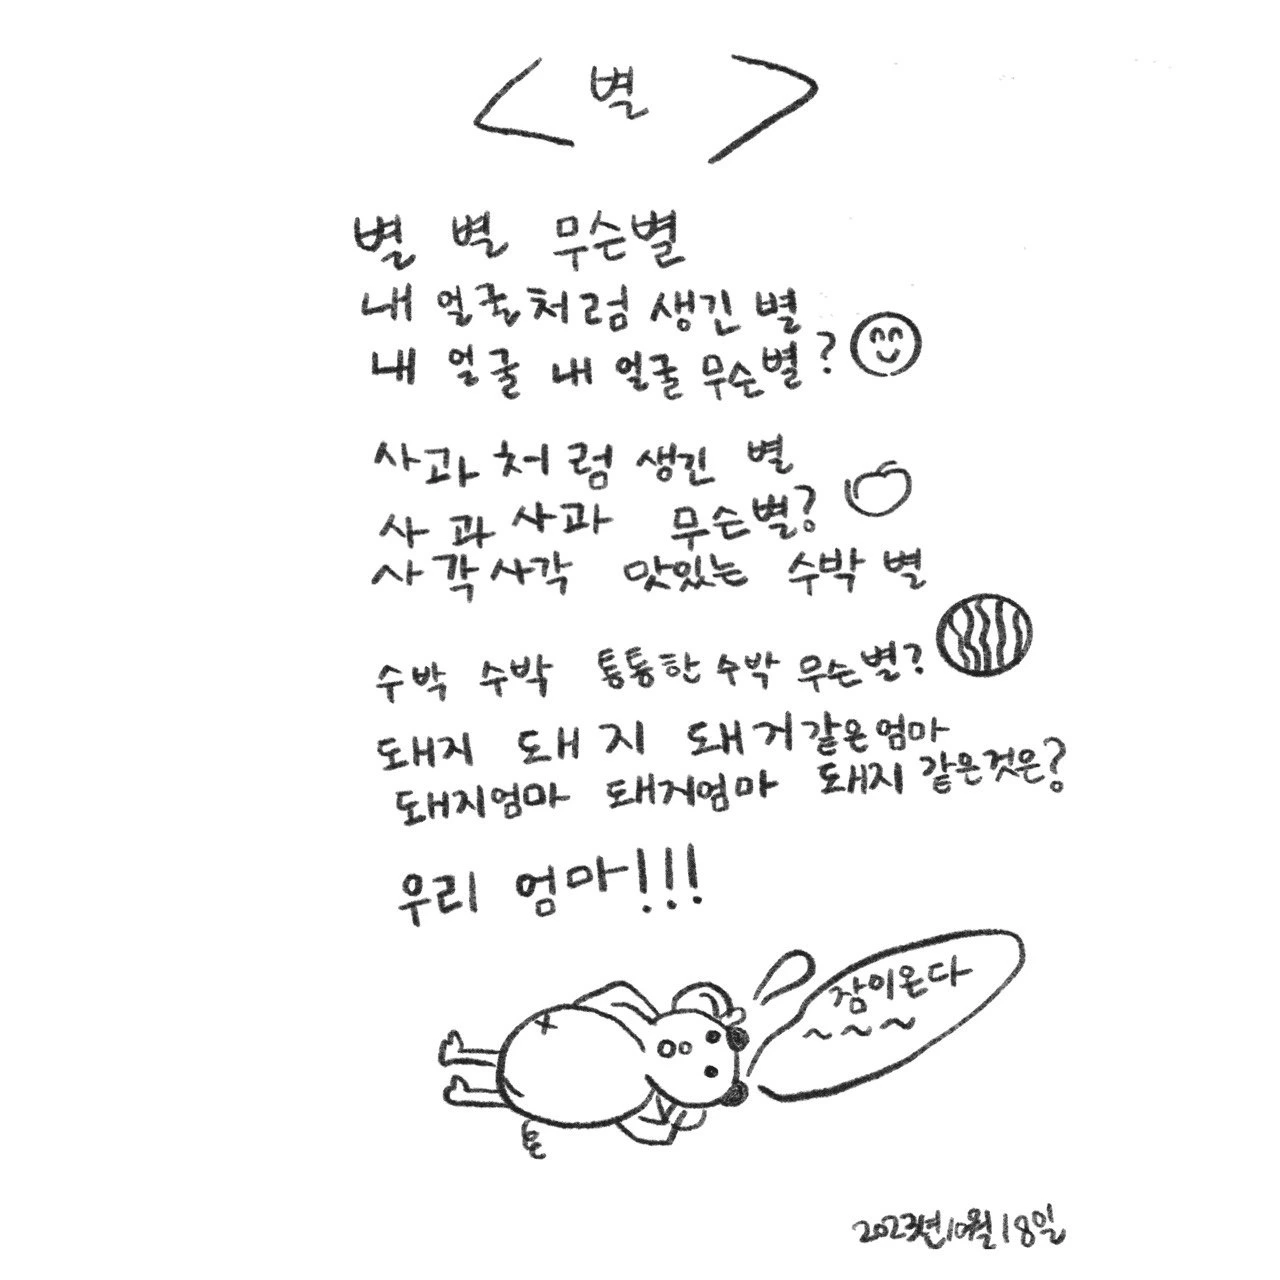 < 별 >
별 별 무슨별
내 얼굴처럼 생긴 별
내 얼굴 내 얼굴 무슨별?
사과처럼 생긴 별
사과사과 무슨별?
사각사각 맛있는 수박 별
수박 수박 통통한 수박 무슨별?
돼지 돼지 돼거같은엄마
돼지엄마 돼지엄마 돼지 같은것은?
우리 엄마!!!
잠이온다
~~~
2023년10월18일